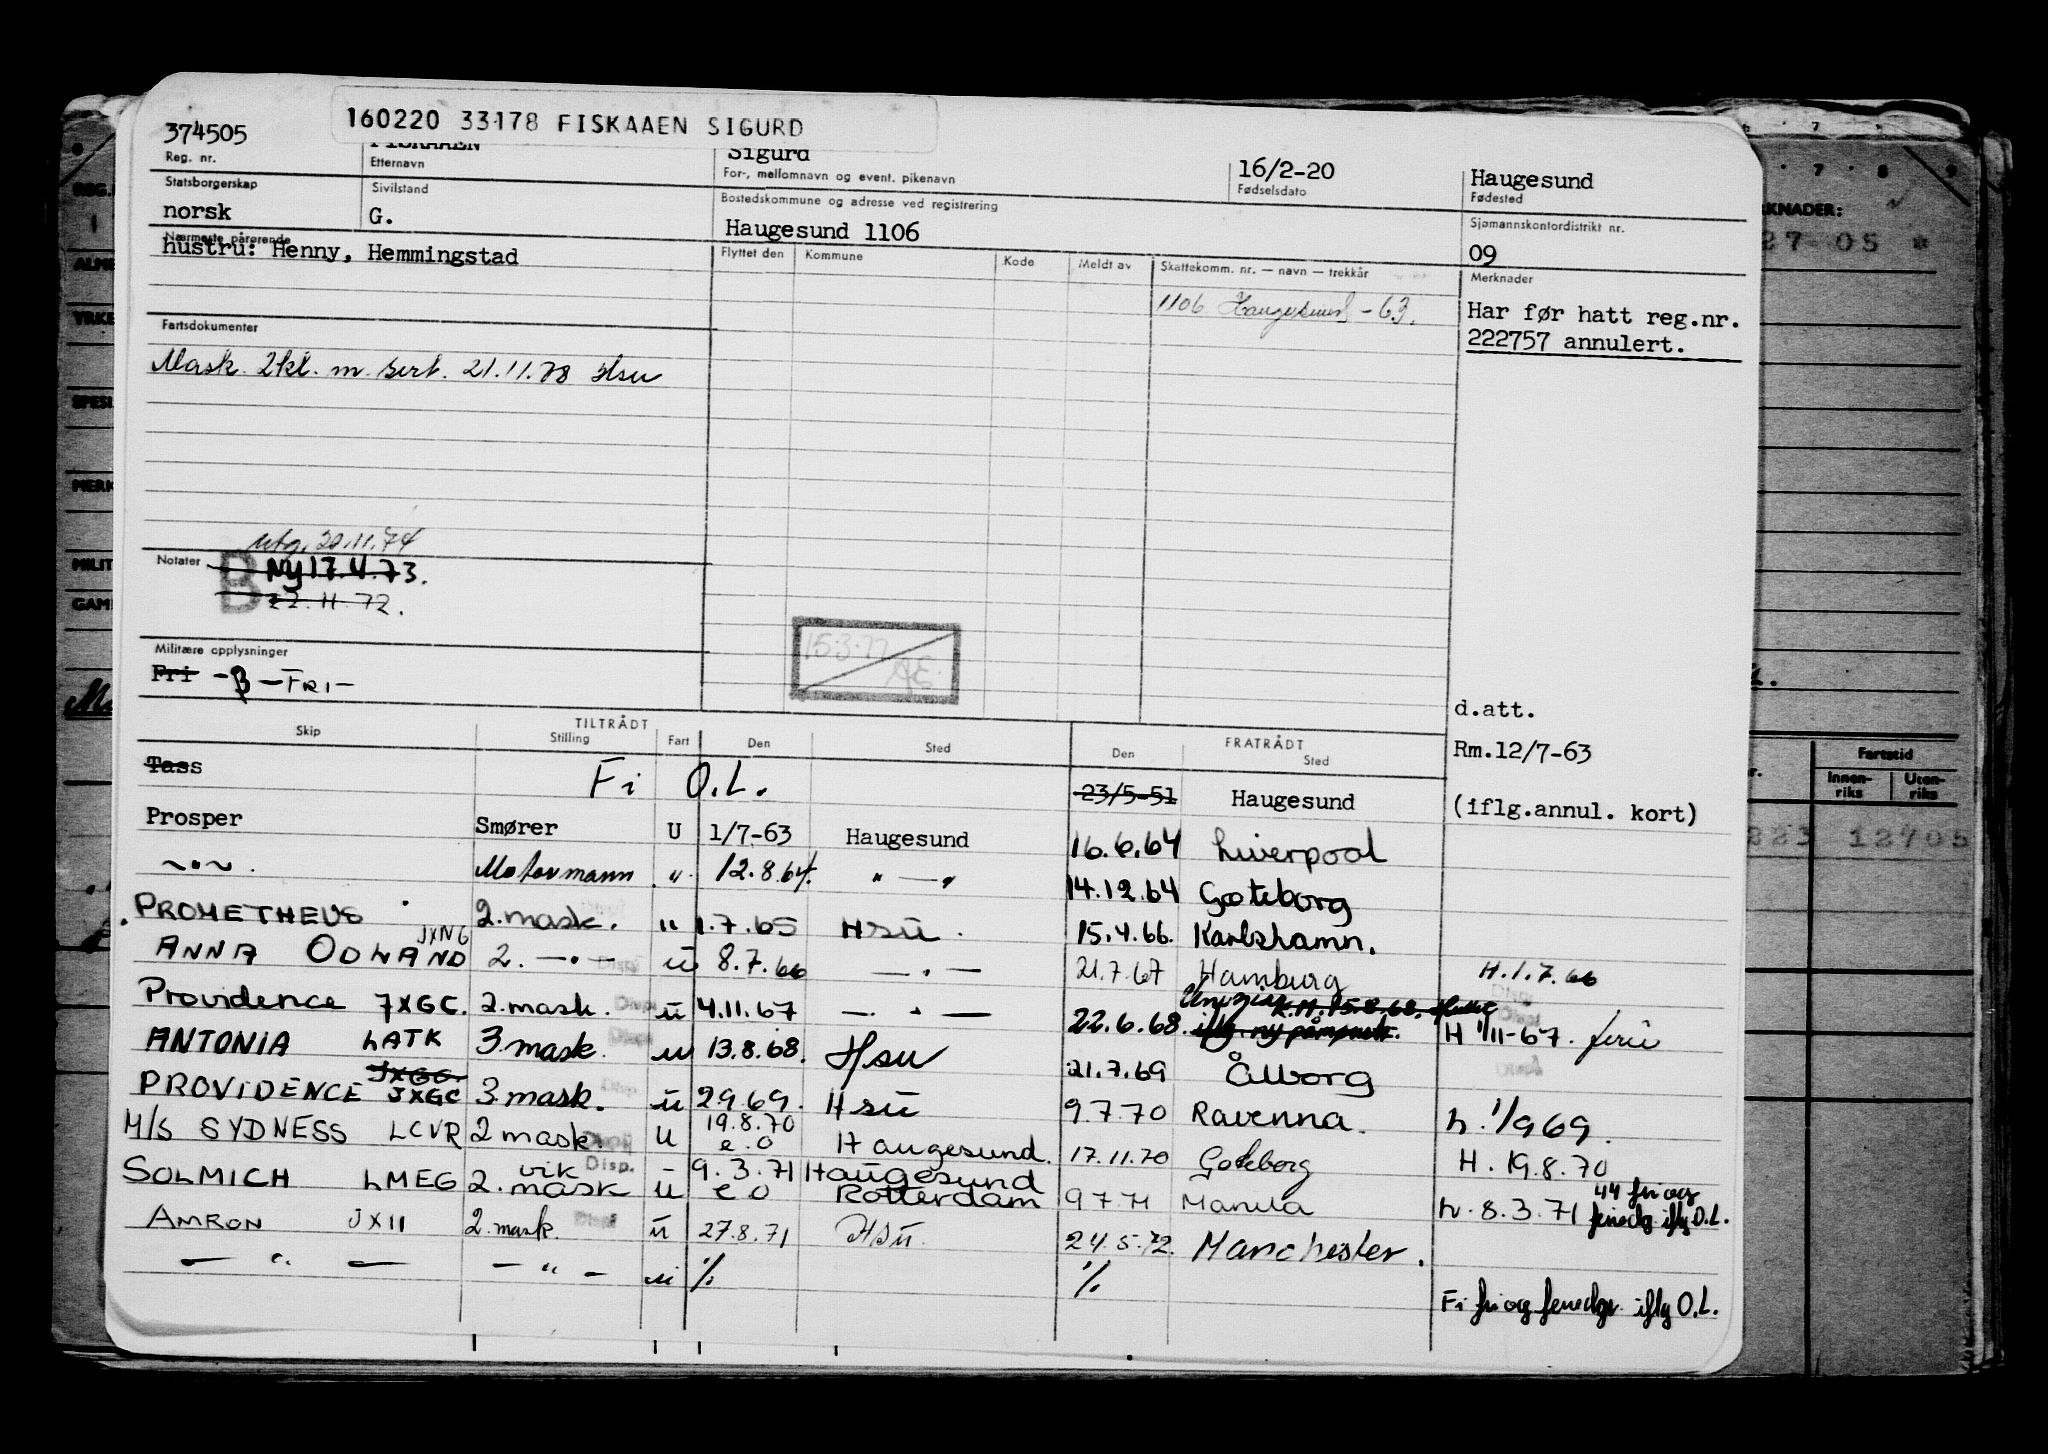 160220 33178 FISKAAEN SIGURD
374505
Reg. nr.
FISKAAEN
Etternavn
Sigurd
For-, mellomnavn og event. pikenavn
16/2-20
Fødselsdato
Haugesund
Fødested
Statsborgerskap
norsk
Sivilstand
G.
Bostedskommune og adresse ved registrering
Haugesund 1106
Sjømannskontordistrikt nr.
09
Nærmeste pårørende
hustru: Henny, Hemmingstad
Flyttet den Kommune Kode Meldt av Skattekomm. nr. — navn — trekkår
1106 Haugesund -63.
Merknader
Har før hatt reg.nr.
222757 annulert.
Fartsdokumenter
Mask. 2kl. m. sert. 21.11.78 Hsu
utg. 20.11.74
Notater
B Ny 17.4.73.
22.11.72.
15.3.77
Militære opplysninger
Fri -B-FRI-
d.att.
Rm.12/7-63
(iflg.annul. kort)
TILTRÅDT
FRATRÅDT
Skip Stilling Fart Den Sted Den Sted
Tass Fi O.L. 23/5-51 Haugesund
Prosper Smører U 1/7-63 Haugesund 16.6.64 Liverpool
~"~. Motormann " 12.8.64. " — " 14.12.64 Gøteborg
PROMETHEUS 2.mask. " 1.7.65 Hsu. 15.4.66. Karlshamn.
ANNA ODLAND JXNG 2. —"— Disp u 8.7.66 — " — 21.7.67 Hamburg H.1.7.66
Providence JXGC. 2.mask. Disp u 4.11.67 — " — 22.6.68. iflg. ny påmønstr. H 1/11-67. ferie
ANTONIA LATK 3.mask. Disp u 13.8.68. Hsu 21.7.69 Ålborg
PROVIDENCE JXGG. JXGC 3.mask. Disp u 2969. Hsu 9.7.70 Ravenna. h. 1/969.
M/S SYDNESS LCVR 2 mask. Disp u 19.8.70 e.o Haugesund. 17.11.70 Gøteborg H. 19.8.70
SOLMICH LMEG vik Disp. - 9.3.71 Haugesund
2. mask u e o Rotterdam 9771 Manila h. 8.3.71 44 fri og feriedg. iflg O.L.
AMRON JXII 2.mask. Disp u 27.8.71 HSU. 24.5.72. Manchester.
— " — — " — u % % Fi fri og feriedgr iflg O.L.
REG.
ALM
YRKE
SPESI
MERK
MILIT
GAM
KNADER:
27 05 *
7 8 9
Fartstid
Innenriks Utenriks
223 12705